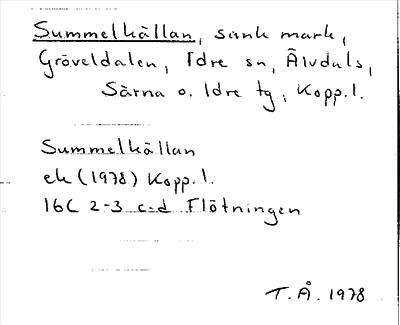 Summelkällan, sank mark,
Gröveldalen, Idre sn, Älvdals,
Särna o. Idre tg, Kopp.l.
Summelkällan
ek (1978) Kopp.l.
16C 2-3 c-d Flötningen
T.Å. 1978